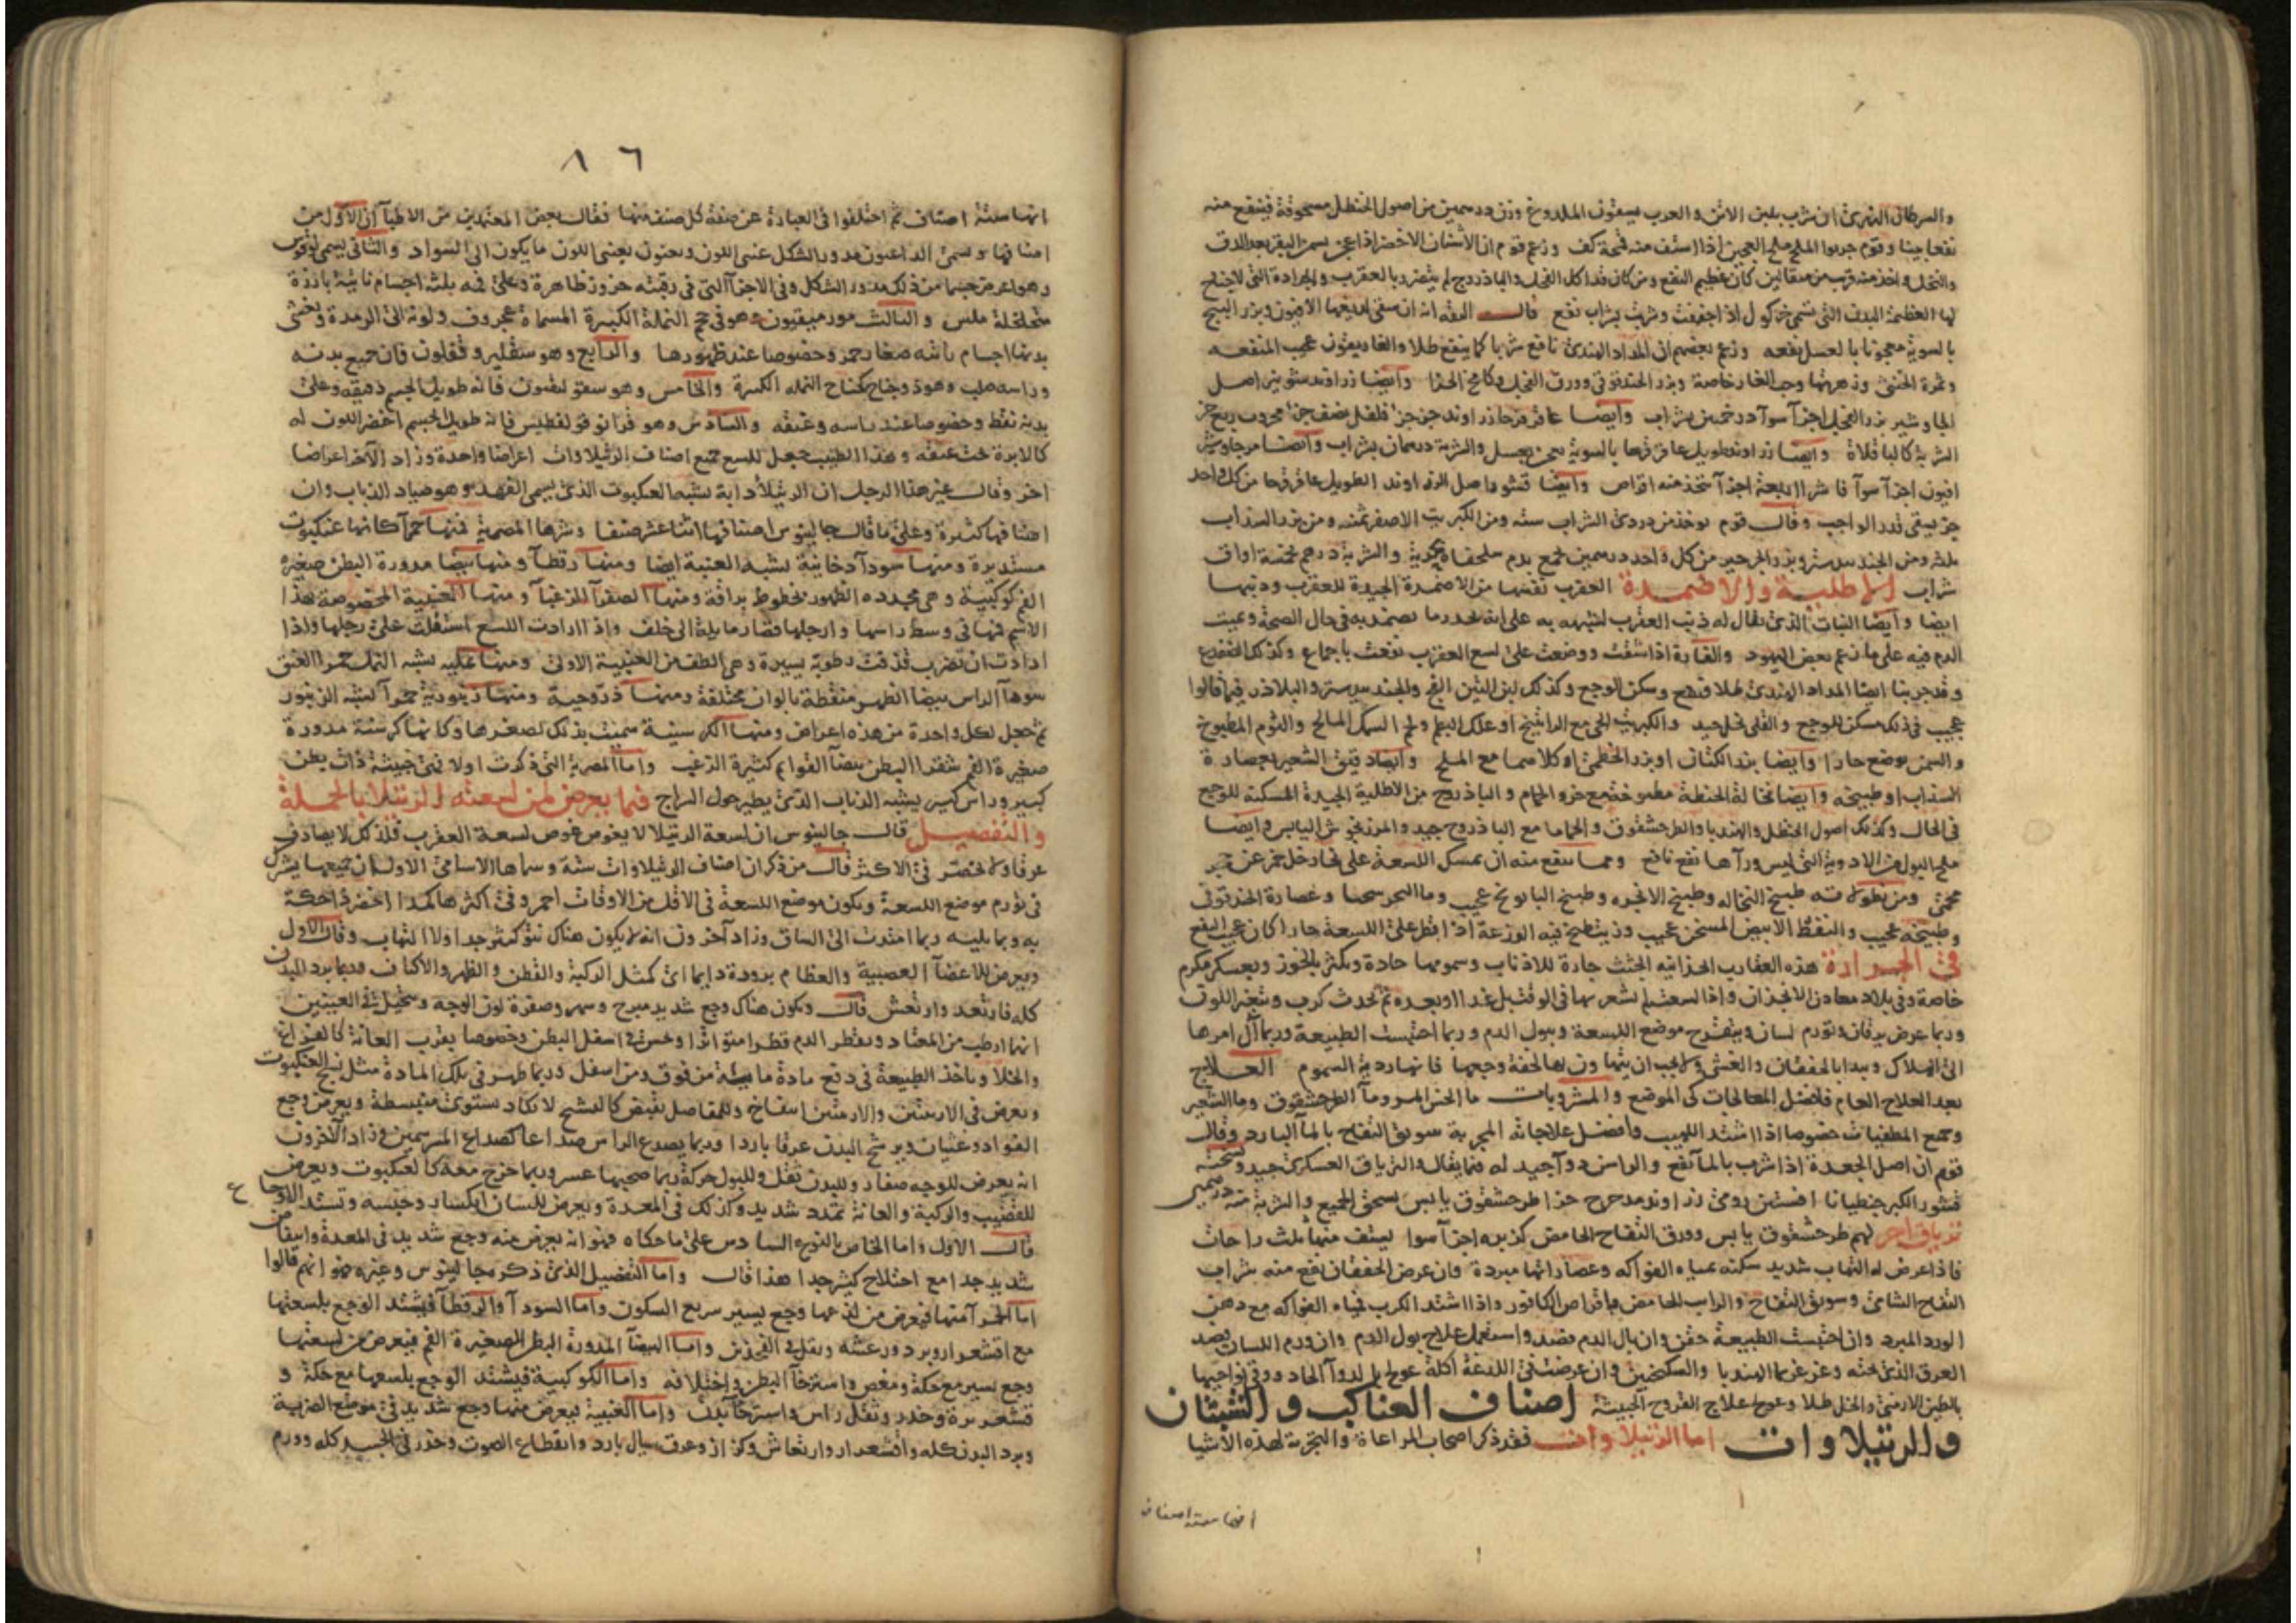 والسرطان النهرى ان شرب بلبن الاتن والعرب يسقون الملدوغ وزن درهمين من اصول الحنظل مسحوقة فينتفع منه
نفعا بينا وقوم جربوا الملح ملح العجين اذا استف منه قمحة كف وزعم قوم ان الأشنان الاخضر اذا عجن بسمن البقر بعد الدق
والنخل واخذ منه قرب من مثقالين كان عظيم النفع ومن كان قد اكل الفجل والباذروج لم يتضرر بالعقرب والجرادة التى لاجناح
لها العظيمة البدن التى تسمى خركول اذا جففت وشربت بشراب نفع قالــت الثقة انه ان سقى لديغها الافيون وبزر البنج
بالسوية معجونا بالعسل نفعه وزعم بعضهم ان المداد الهندى نافع شربا كما ينفع طلا والغاريقون عجيب المنفعه
وثمرة الخنثى وزهرتها وحب الغار خاصة وبزر الحندقوقى وورق الفجل وايضا زراوند
الجاوشير بزر الفجل اجزآ سوآ درخمين بشراب وايضا عاقرقرحا زراوند جزجز فلفل نصف جز
الشربة كالباقلاة وايضا زراوند طويل عاقرقرحا بالسوية يعجن بعسل والشربة درهمان بشراب وايضا مر جاوشير
افيون اجزآ سوآ فاشرا اربعة اجزآ تتخذ منه اقراص وايضا قشور اصل الزراوند الطويل عاقرقرحا من كل واحد
جز يسقى قدر الواجب وقال قوم يوخذ من دردى الشراب سته ومن الكبريت الاصفر ثمنه ومن بزر السذاب
ثلثه ومن الجندبيدستر وبزر الجرجير من كل واحد درهمين تجمع بدم سلحفاة بحرية والشربة درهم بخمسة اواق
شراب الاطلية والاضمدة العقرب نفسها من الاضمدة الجيدة للعقرب
ايضا وايضا النبات الذى يقال له ذنب العقرب لشبهه به على انه يخدر ما يضمد به فى حال الصحة ويميت
الدم فيه على ما زعم بعض اليهود والفارة اذا شقت ووضعت على لسع العقرب نفعت باجماع وكذلك الضفدع
وقد جربنا ايضا المداد الهندى طلا فنفع وسكن الوجع وكذلك لبن التين الفج والجندبيدستر والبلاذر فيما قالوا
عجيب فى ذلك مسكن للوجع والقلى بخل جيد والكبريت الحى مع الراتينج او علك البطم ولحم السمك المالح والثوم المطبوخ
والسمن يوضع حارا وايضا بزر الكتان او بزر الخطمى او كلاهما مع الملح وايضا دقيق الشعير بعصارة
السذاب او طبيخه وايضا نخالة الحنطة مطبوخة مع خرو الحمام والباذروج من الاطلية الجيدة المسكنة للوجع
فى الحال وكذلك اصول الحنظل والهندبا والطرحشقوق والحماما مع الباذروج جيد والمرزنجوش اليابس وايضا
ملح البول من الادوية التى ليس ورآها نفع نافع ومما ينتفع منه ان يمسك اللسعة على بخار خل خمر عن حجر
محمى ومن نطولاته طبيخ النخاله وطبيخ الانجره وطبيخ البابونج عجيب وما البحر سخنا وعصارة الحندقوقى
وطبيخه عجيب والنفط الابيض المسخن عجيب وزيت طبخ فيه الوزغة اذا قطر على اللسعة حارا كان عجيب النفع
فى الجرارة هذه العقارب الجثث جارة للاذناب وسمومها حادة وتكثر بالخوز وبعسكر مكرم
خاصة وفى بلاد معادن الانجذان واذا لسعت لم يشعر بها فى الوقت بل غدا او بعده ثم تحدث كرب وتغير اللون
وربما عرض يرقان وتورم لسان ويتقرح موضع اللسعة وبول الدم وربما احتبست الطبيعة وربما آل امرها
الى الهلاك ويبدا بالخفقان والغشى ولا يجب ان يتهاون بها لخفة وجعها فانها ردية السموم العــلاج
بعد العلاج العام فافضل المعالجات كى الموضع والمشروبات ما الخس المر وما الطرحشقوق وما الشعير
وجميع المطفيات خصوصا اذا اشتد اللهيب وافضل علاجاته المجربة سويق التفاح بالمآ البارد وقال
قوم ان اصل الجعدة اذا شرب بالمآ نفع والراسن دوآ جيد له فيما يقال والترياق العسكرى جيد ونسخته
قشور الكبر جنطيانا افسنتين رومى زراوند مدحرج جزا طرحشقوق يابس يسحق الجميع والشربة منه درهمين
ترياق اخر لهم طرحشقوق يابس وورق التفاح الحامض كزبره اجزآ سوا يستف منها ثلث راحات
فاذا عرض له التهاب شديد سكته بمياه الفواكه وعصاراتها مبردة وان عرض الخفقان نفع منه شراب
التفاح الشامى وسويق التفاح والرايب الحامض واقراص الكافور واذا اشتد الكرب فمياه الفواكه مع دهن
الورد المبرد وان احتبست الطبيعة حقن وان بال الدم فصد واستعمل علاج بول الدم وان ورم اللسان فصد
العرق الذى تحته وغرغر بما الهندبا والسكنجبين وان عرضت فى اللدغة اكلة عولج بالدوآ الحاد ودوى نواحيها
بالطين الارمنى والخل طلا وعولج علاج القروح الخبيثة اصناف العناكب والشبثان
والرتيلاوات اما الرتيلاوات فقد ذكر اصحاب المراعاة والتجربة لهذه الاشيا
انها ستة اصناف
٨٦
انها ستة اصناف ثم اختلفوا فى العبارة عن صفة كل صنف منها فقال بعض المعتمدين من الاطبآ ان الاول من
اصنافها مدور الشكل عنبى اللون ويعنون بعنبى اللون ما يكون الى السواد والثانى يسمى لوقوس
وهو اعرض جسما من ذلك مدور الشكل وفى الاجزآ التى فى رقبته حزوز ظاهرة وعلى فيه ثلثة اجسام ناتية بارزة
متخلخلة ملس والثالث مورميقيون وهو فى حجم النملة الكبيرة المسماة عجروف ولونه الى الرمدة ويغشى
بدنها اجسام ناتيه صغار حمر وخصوصا عند ظهورها والرابع وهو سقليروقفلون فان جميع بدنه
وراسه صلب وهو ذو جناح كجناح النمله الكبيرة والخامس وهو فانه طويل الجسم دقيقه وعلى
بدنه نقط وخصوصا عند راسه وعنقه والسادس وهو فرانوقولفطيس فانه طويل الجسم اخضر اللون له
كالابرة تحت عنقه وهذا الطبيب جعل للسع جميع اصناف الرتيلاوات اعراضا واحدة وزاد الآخر اعراضا
اخر وقال غير هذا الرجل ان الرتيلا دابة تشبه العنكبوت الذى يسمى الفهد وهو صياد الذباب وان
اصنافها كثيرة وعلى ما قال جالينوس اصنافها اثنا عشر صنفا وشرها المصرية فمنها حمرآ كانها عنكبوت
مستديرة ومنها سودآ دخانية تشبه العنبة ايضا ومنها رقطآ ومنها بيضا مدورة البطن صغيرة
الفم كوكبية وهى مجدده الظهور بخطوط براقة ومنها الصفرآ الزغبآ ومنها العنبية المخصوصة بهذا
الاسم فمها فى وسط راسها وارجلها قصار مايلة الى خلف واذا ارادت اللسع استلقت على رجلها واذا
ارادت ان تضرب قذفت رطوبة يسيرة وهى الطف من العنبية الاولى ومنها نملية تشبه النمل حمرا العنق
سودآ الراس بيضا الظهر منقطة بالوان مختلفة ومنها ذروحية ومنها زنبورية حمرآ تشبه الزنبور
ثم جعل لكل واحدة من هذه اعراض ومنها الكرسنية سميت بذلك لصغرها وكانها كرسنة مدورة
صغيرة الفم شقرا البطن بيضآ القوايم كثيرة الزغب واما المصرية التى ذكرت اولا فهى خبيثة ذات بطن
كبير وراس كبير يشبه الذباب الذى يطير حول السراج فيما يعرض لمن لسعته الرتيلا بالجملة
والتفصيل قال جالينوس ان لسعة الرتيلا لا يغوص غوص لسعة العقرب فلذلك لا يصادف
عرقا ولا تحضر فى الاكثر قال من ذكر ان اصناف الرتيلاوات ستة وسماها الاسامى الاول ان جميعها يشترك
فى تورم موضع اللسعة ويكون موضع اللسعة فى الاقل من الاوقات احمر وفى اكثرها كمدا اخضر ذا حكة
به وبما يليه ربما امتدت الى الساق وزاد آخرون انه لا يكون هناك نتو كثير جدا ولا التهاب وقال الاول
ويعرض للاعضآ العصبية والعظام برودة دايما اى كمثل الركبة والقطن والظهر والاكتاف وربما برد البدن
كله فارتعد وارتعش قال ويكون هناك وجع شديد مبرح وسهر وصفرة لون الوجه وتخيل فى العينين
انها ارطب من المعتاد ويقطر الدم قطرا متواترا وتحس فى اسفل البطن وخصوصا بقرب العانة كالفراغ
والخلآ وتاخذ الطبيعة فى دفع مادة مائية من فوق ومن اسفل وربما ظهر فى تلك المادة مثل نسج العنكبوت
ويعرض فى الاربيتين انتفاخ وللمفاصل تقبض كالتشنج لا تكاد تستوى منبسطة ويعرض وجع
الفواد وغثيان ويرشح البدن عرقا باردا وربما يصدع الراس صداعا كصداع المبرسمين وزاد الآخرون
انه يعرض للوجه صفار وللبدن ثقل وللبول حرقة ربما صحبها عسر وربما خرج معه كالعنكبوت ويعرض
للقضيب والركبة والعانة تمدد شديد وكذلك فى المعدة ويعرض للسان انكسار وحبسه وتشتد الاوجاع
قال الاول واما الخاص بالنوع السادس على ما حكاه فهو انه يعرض منه وجع شديد فى المعدة
شديد جدا مع اختلاج كثير جدا هذا قال واما التفصيل الذى ذكره جالينوس وغيره فهو انهم قالوا
اما الحمرآ منها فيعرض من لدغها وجع يسير سريع السكون واما السودآ والرقطآ فيشتد الوجع بلسعتها
مع اقشعرار وبرد ورعشه وثقل فى الفخذين واما البيضآ المدورة البطن الصغيرة الفم فيعرض من لسعتها
وجع يسير مع حكة ومغص واسترخآ البطن واختلافه واما الكوكبية فيشتد الوجع بلسعها مع حكة و
قشعريرة وخدر وثقل راس واسترخآ بدن واما العنبية فيعرض منها وجع شديد فى موضع الضربة
وبرد البدن كله واقشعرار وارتعاش وكزاز وعرق سيال بارد وانقطاع الصوت وخدر فى الجسد كله وورم